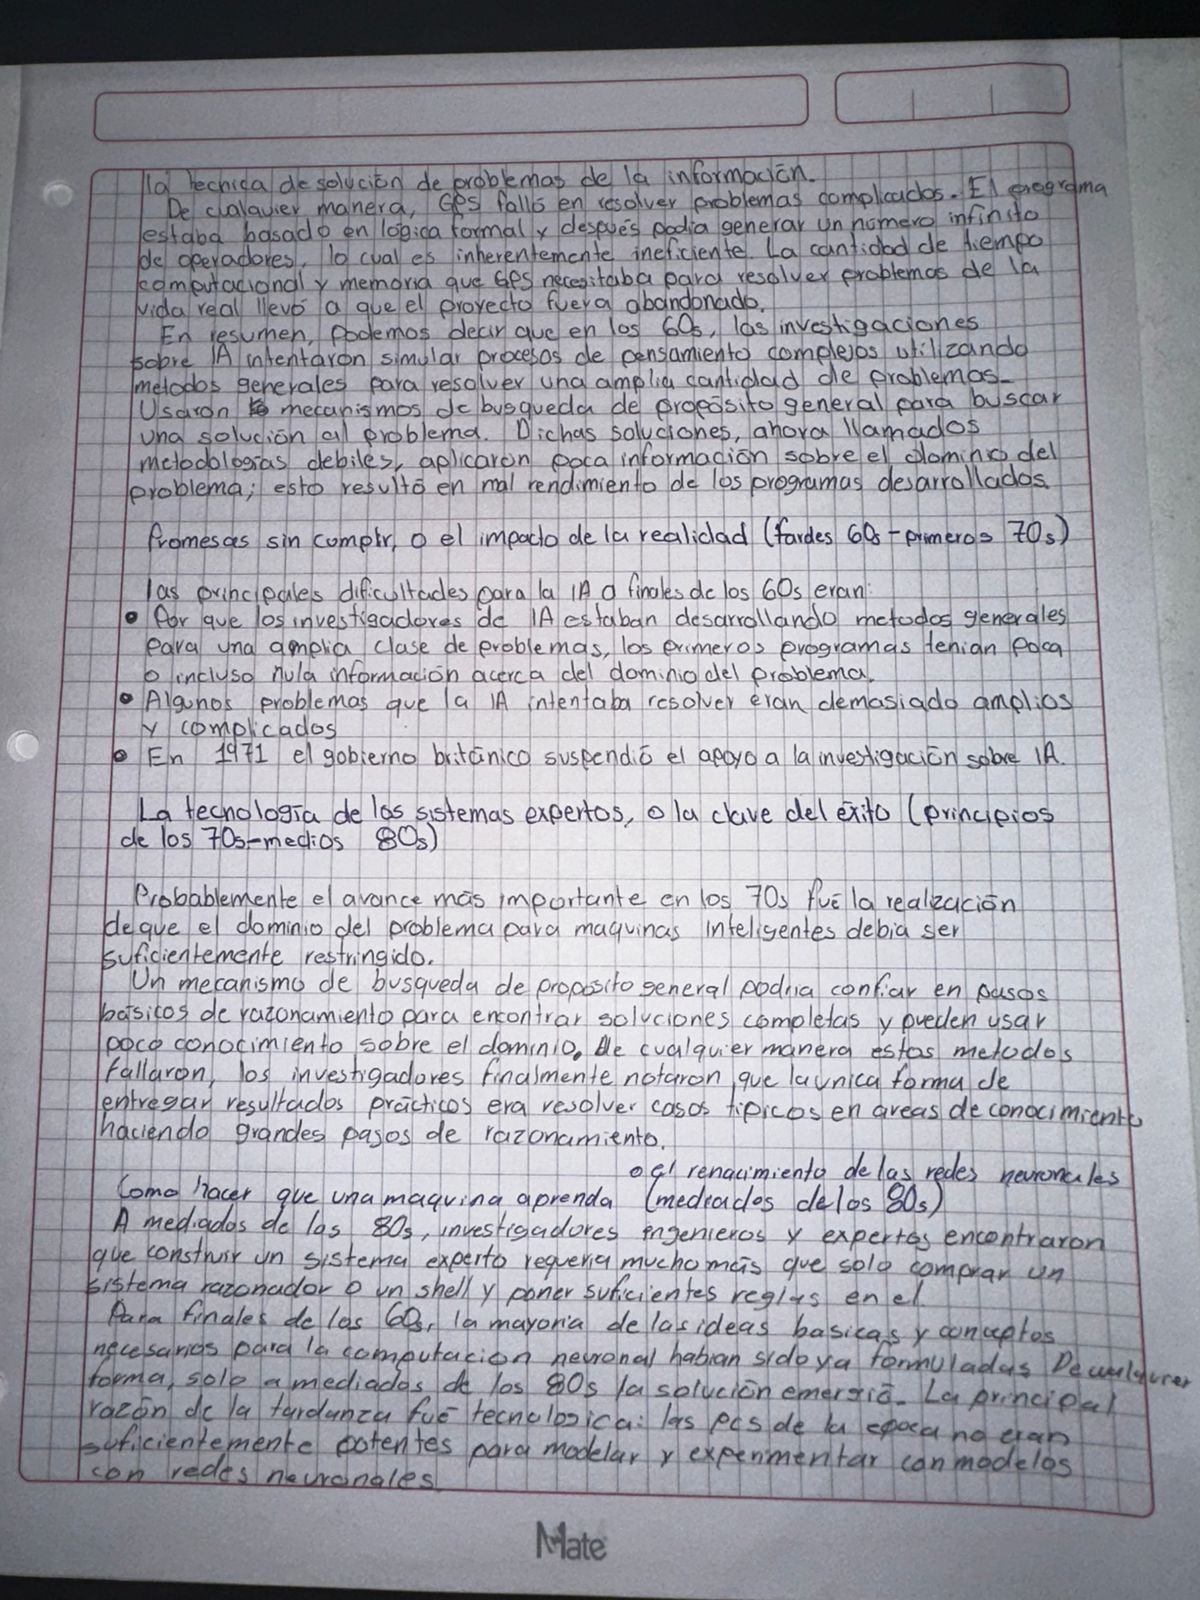 la tecnica de solución de problemas de la información.
De cualquier manera, GPS falló en resolver problemas complicados. El programa
estaba basado en lógica formal y después podia generar un número infinito
de operadores, lo cual es inherentemente ineficiente. La cantidad de tiempo
computacional y memoria que GPS necesitaba para resolver problemas de la
vida real llevó a que el proyecto fuera abandonado.
En resumen, podemos decir que en los 60s, las investigaciones
sobre IA intentaron simular procesos de pensamiento complejos utilizando
metodos generales para resolver una amplia cantidad de problemas.
Usaron mecanismos de busqueda de propósito general para buscar
una solución al problema. Dichas soluciones, ahora llamados
metodologías debiles, aplicaron poca información sobre el dominio del
problema; esto resultó en mal rendimiento de los programas desarrollados.
Promesas sin complir, o el impacto de la realidad (tardes 60s - primeros 70s)
las principales dificultades para la IA a finales de los 60s eran:
• Por que los investigadores de IA estaban desarrollando metodos generales
para una amplia clase de problemas, los primeros programas tenian poca
o incluso nula información acerca del dominio del problema.
• Algunos problemas que la IA intentaba resolver eran demasiado amplios
y complicados
• En 1971 el gobierno británico suspendió el apoyo a la investigación sobre IA.
La tecnología de los sistemas expertos, o la clave del éxito (principios
de los 70s-medios 80s)
Probablemente el avance más importante en los 70s fué la realización
de que el dominio del problema para maquinas inteligentes debia ser
suficientemente restringido.
Un mecanismo de busqueda de proposito general podria confiar en pasos
básicos de razonamiento para encontrar soluciones completas y pueden usar
poco conocimiento sobre el dominio. De cualquier manera estos metodos
fallaron, los investigadores finalmente notaron que la unica forma de
entregar resultados prácticos era resolver casos tipicos en areas de conocimiento
haciendo grandes pasos de razonamiento.
o el renacimiento de las redes neuronales
Como hacer que una maquina aprenda (mediados de los 80s)
A mediados de los 80s, investigadores ingenieros y expertos encontraron
que construir un sistema experto requeria mucho más que solo comprar un
sistema razonador o un shell y poner suficientes reglas en el.
Para finales de los 60s, la mayoria de las ideas basicas y conceptos
necesarios para la computacion neuronal habian sido ya formuladas De cualquier
forma, solo a mediados de los 80s la solución emergió. La principal
razón de la tardanza fué tecnologica: las PCs de la epoca no eran
suficientemente potentes para modelar y experimentar con modelos
con redes neuronales.
Mate